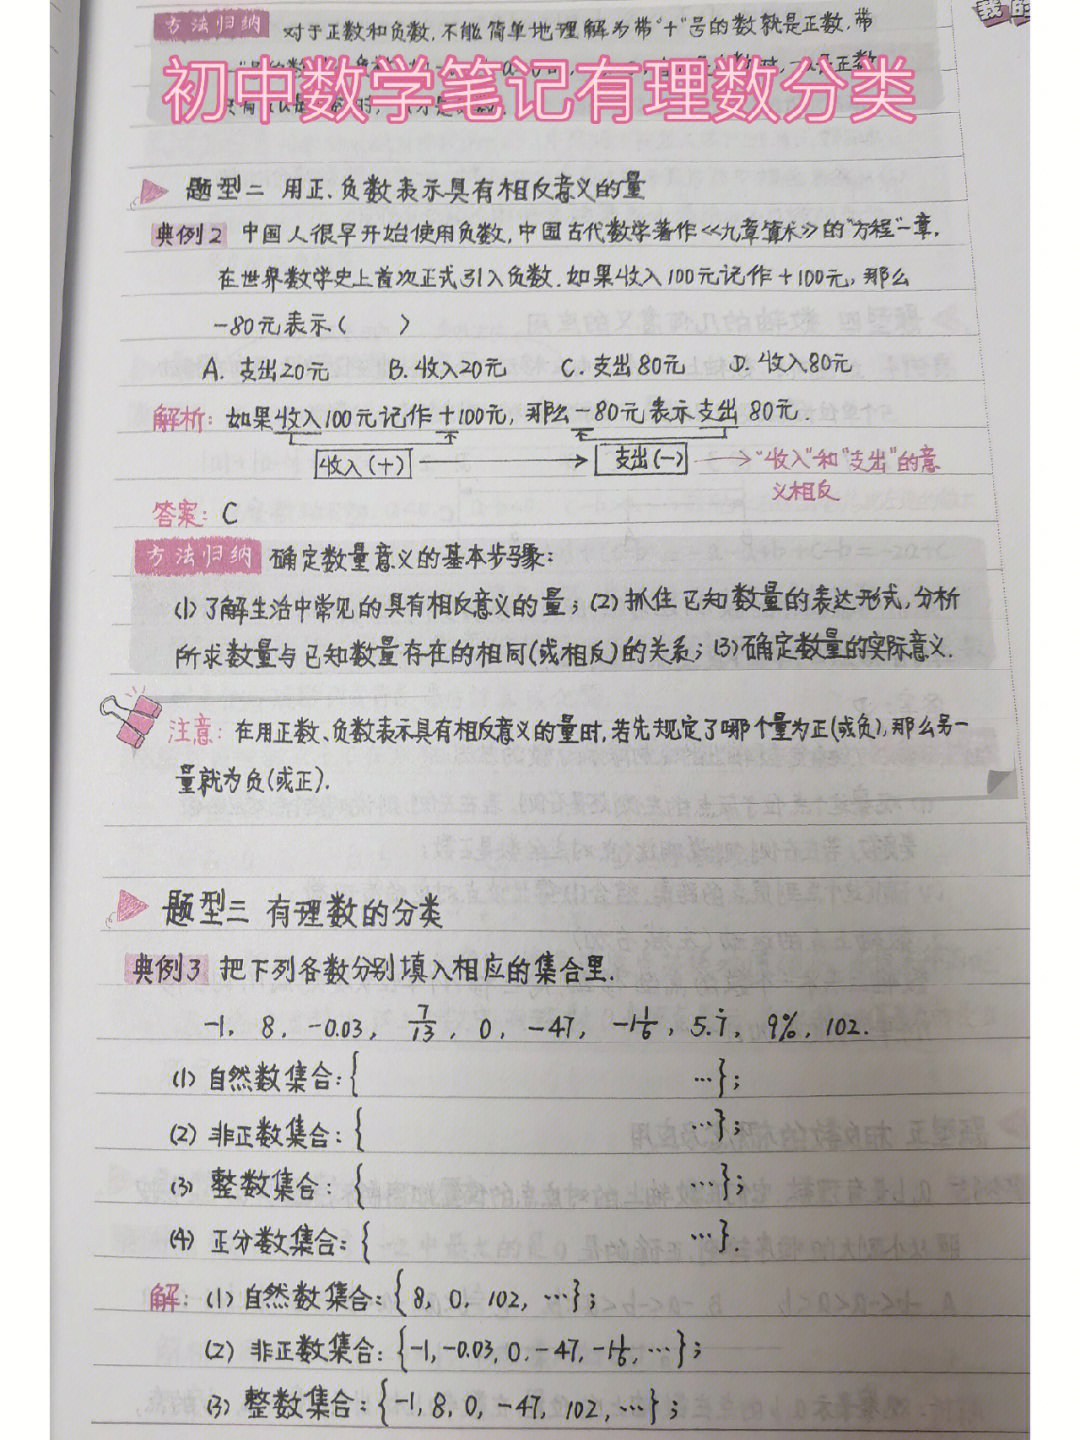 我的
方法归纳 对于正数和负数,不能简单地理解为带"+"号的数就是正数,带
初中数学笔记有理数分类
题型二 用正、负数表示具有相反意义的量
典例2 中国人很早开始使用负数,中国古代数学著作《九章算术》的"方程"一章,
在世界数学史上首次正式引入负数.如果收入100元记作+100元,那么
-80元表示( )
A. 支出20元 B. 收入20元 C. 支出80元 D. 收入80元
解析: 如果收入100元记作+100元, 那么-80元表示支出80元.
收入(+) → 支出(-) → "收入"和"支出"的意
义相反
答案: C
方法归纳 确定数量意义的基本步骤:
(1)了解生活中常见的具有相反意义的量; (2)抓住已知数量的表达形式,分析
所求数量与已知数量存在的相同(或相反)的关系; (3)确定数量的实际意义.
注意: 在用正数、负数表示具有相反意义的量时,若先规定了哪个量为正(或负),那么另一
量就为负(或正).
题型三 有理数的分类
典例3 把下列各数分别填入相应的集合里.
-1, 8, -0.03, 7/13, 0, -47, -1 1/6, 5.7̇, 9%, 102.
(1) 自然数集合:{ …};
(2) 非正数集合:{ …};
(3) 整数集合:{ …};
(4) 正分数集合:{ …}.
解: (1) 自然数集合:{8, 0, 102, …};
(2) 非正数集合:{-1, -0.03, 0, -47, -1 1/6, …};
(3) 整数集合:{-1, 8, 0, -47, 102, …};